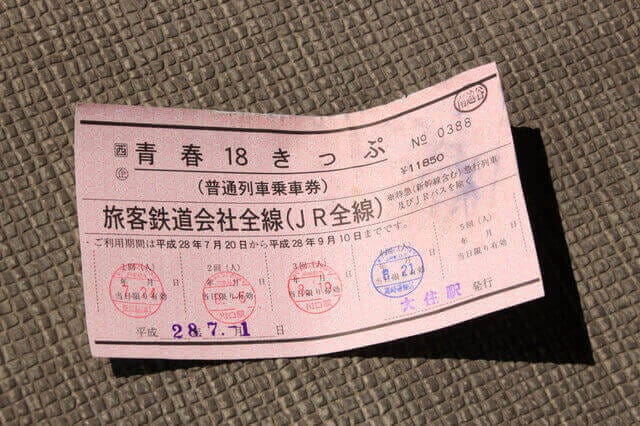 西企 青春18きっぷ № 0388
(普通列車乗車券) ¥11850
旅客鉄道会社全線(JR全線) ※特急(新幹線含む)急行列車
及びJRバスを除く
・ご利用期間は平成28年7月20日から平成28年9月10日までです。
1回(人) 2回(人) 3回(人) 4回(人) 5回(人)
年 月 日 年 月 日 年 月 日 年 月 日 年 月 日
当日限り有効 当日限り有効 当日限り有効 当日限り有効 当日限り有効
川口駅 川口駅 8.21
平成 28年7.-1 日 大住駅 発行